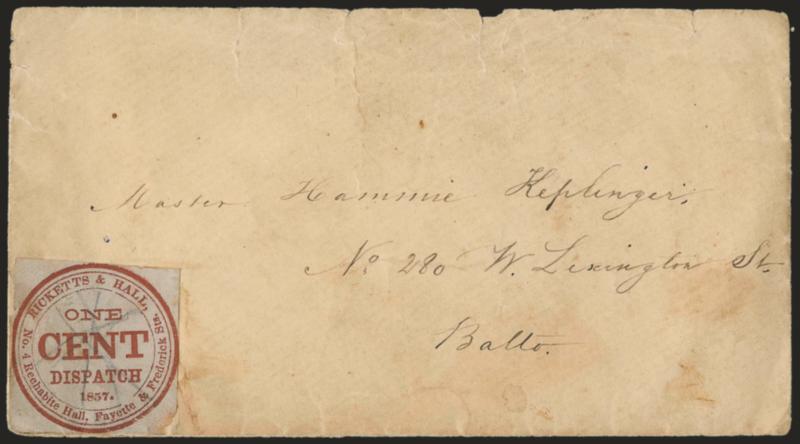 Master Hammie Keplinger,
No 280 W. Lexington St.
Balto.
RICKETTS & HALL,
ONE
CENT
DISPATCH
1857.
No. 4 Rechabite Hall, Fayette & Frederick Sts.